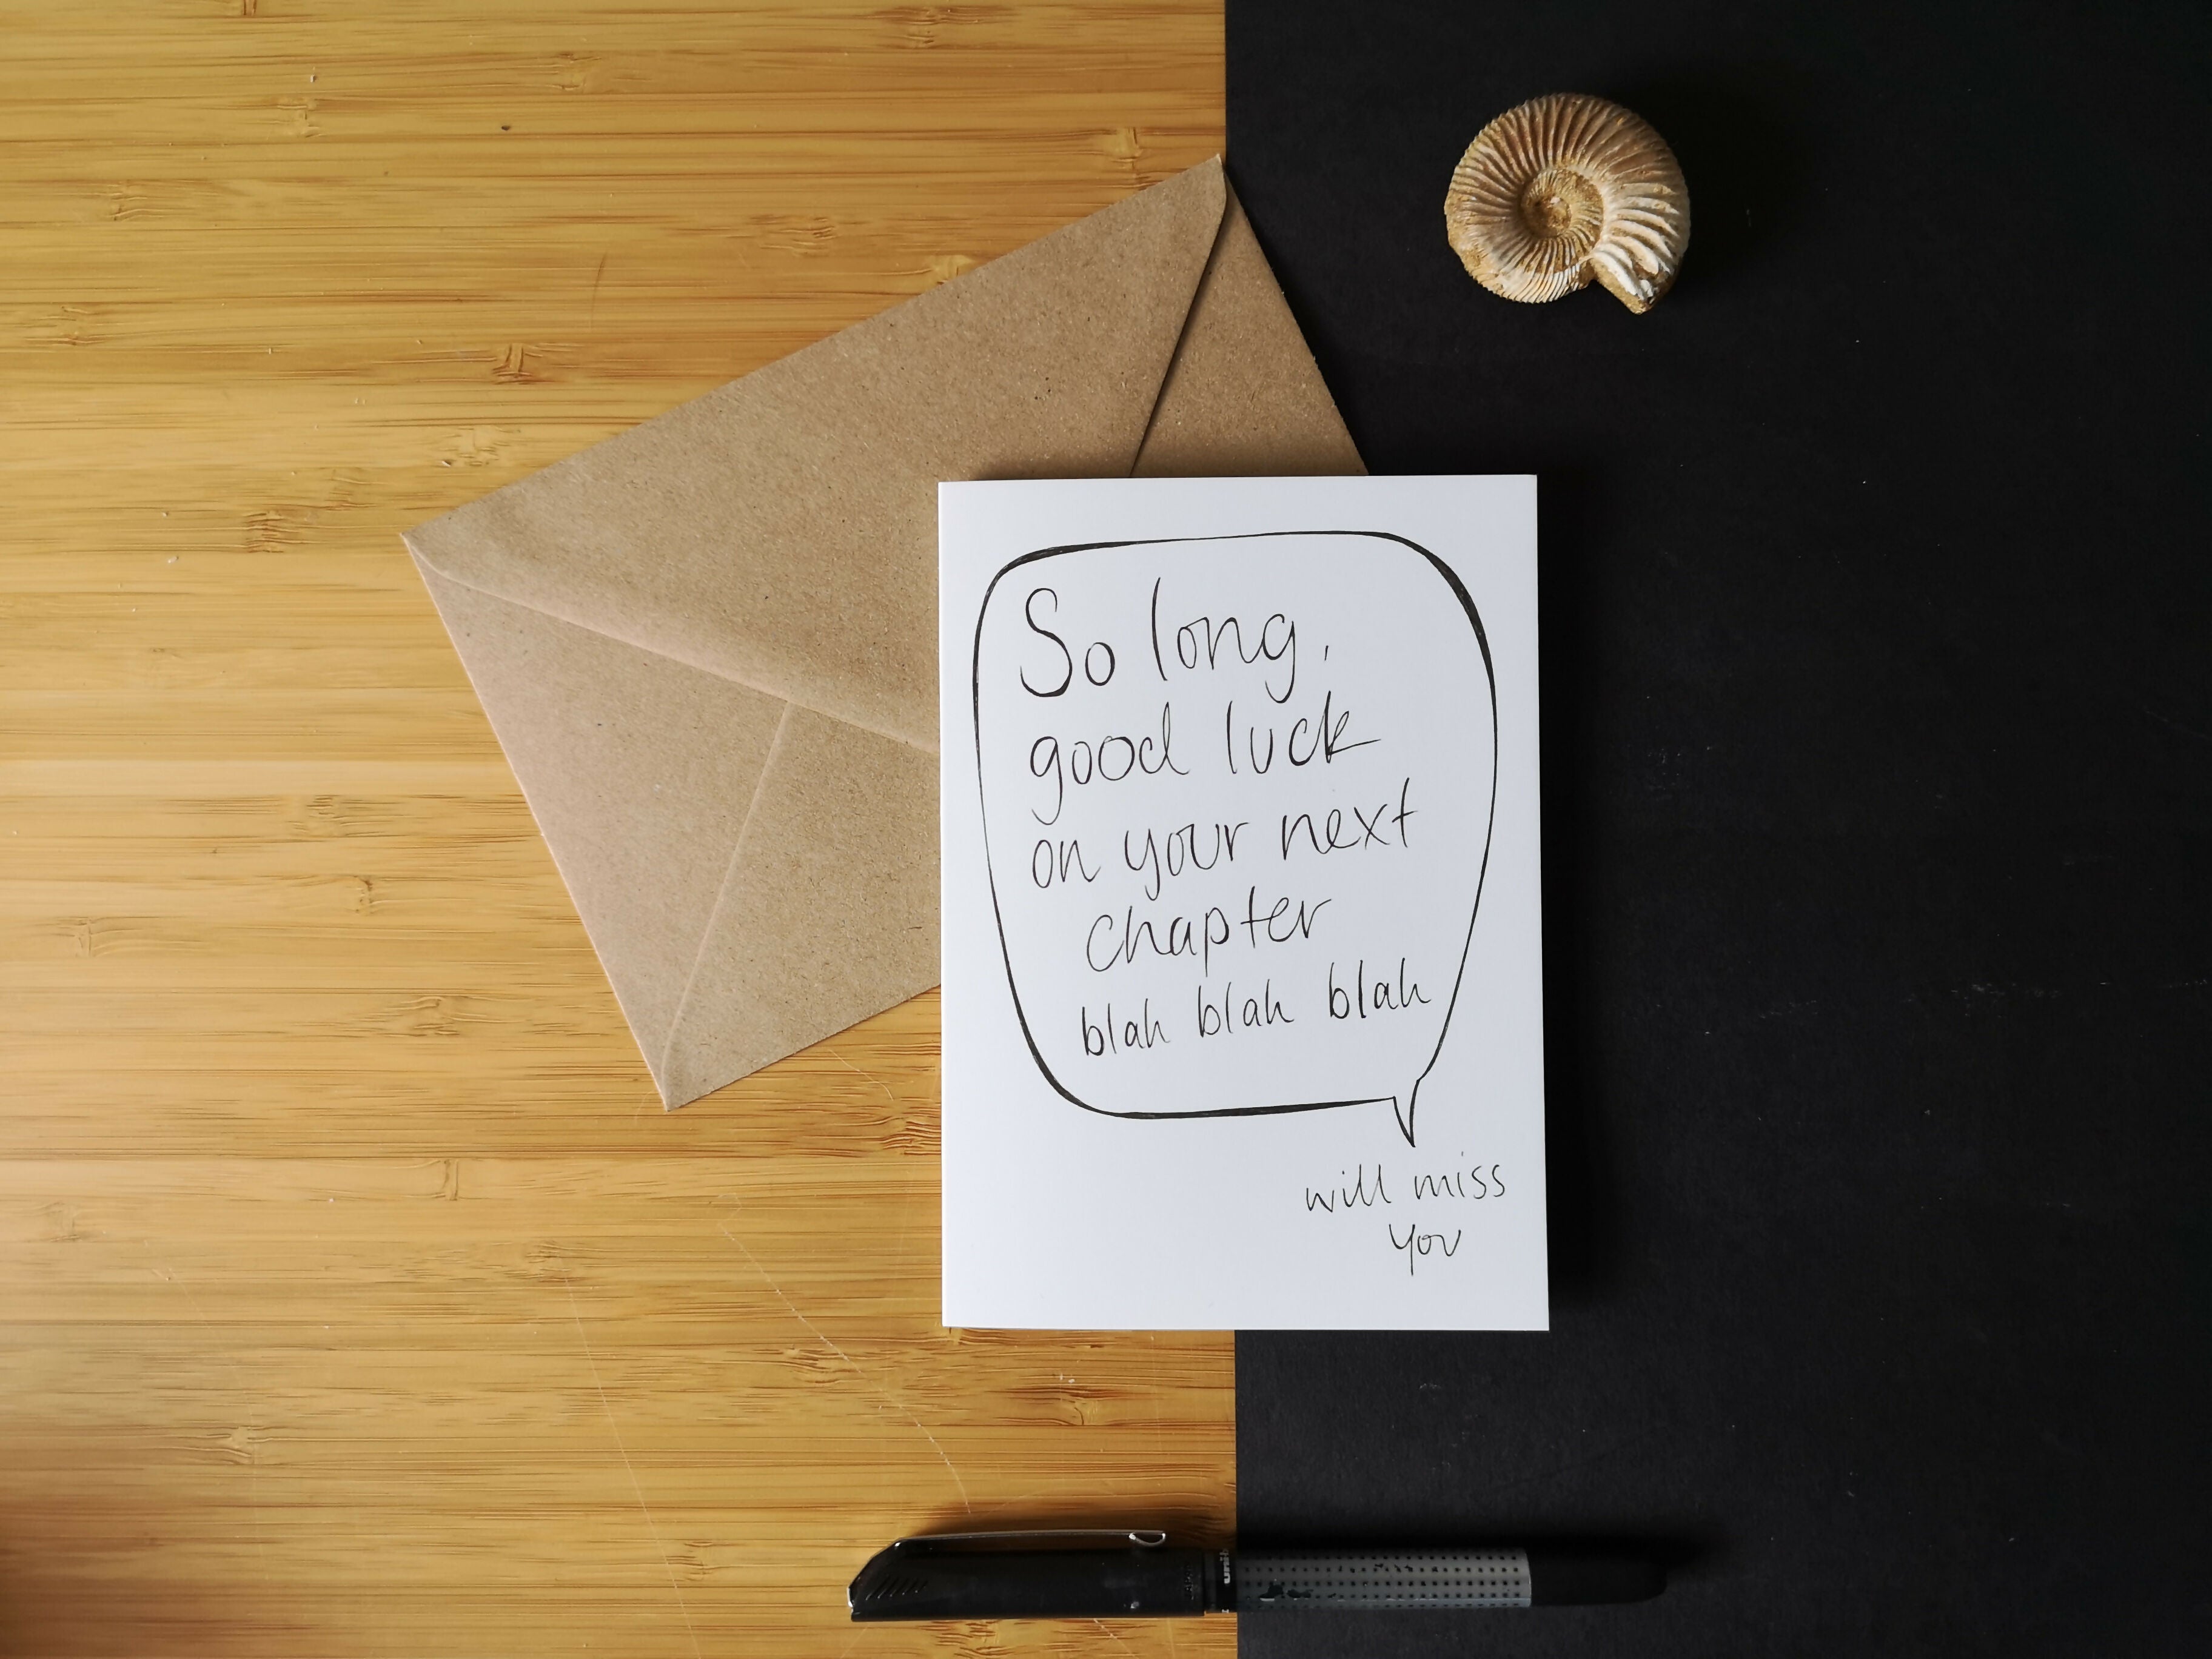 So long,
good luck
on your next
chapter
blah blah blah
will miss
you